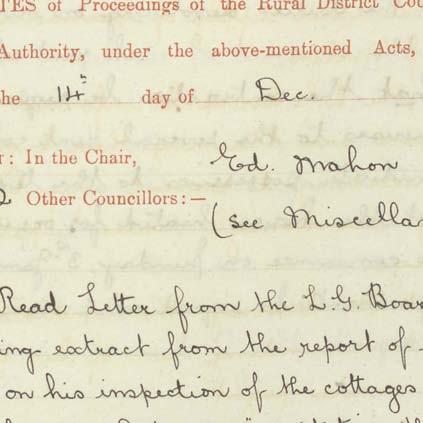 TES of Proceedings of the Rural District Cou
Authority, under the above-mentioned Acts,
he 14th day of Dec.
: In the Chair, Ed. Mahon
Other Councillors:—
(see Miscella
Read Letter from the L. G. Boar
ing extract from the report of
on his inspection of the cottages